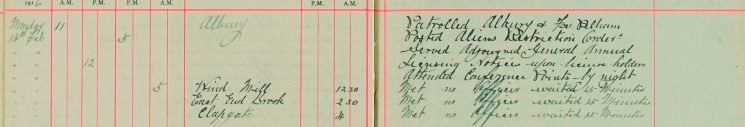 1916 A.M. P.M. A.M. P.M. A.M. P.M. A.M. P.M.
Monday 11 Albury Patrolled Albury & Fur Pelham
14th Feb 5 Posted Aliens Restriction Orders
" " Served Adjourned General Annual
" " 12 Licensing Notices upon licence holders
" " Attended Conference Points by night
" " 5 Wind Mill 12 30 Met no Officer waited 15 Minutes
" " East End Brook 2 30 Met no Officer waited 15 Minutes
" " Clapgate 4 Met no Officer waited 15 Minutes